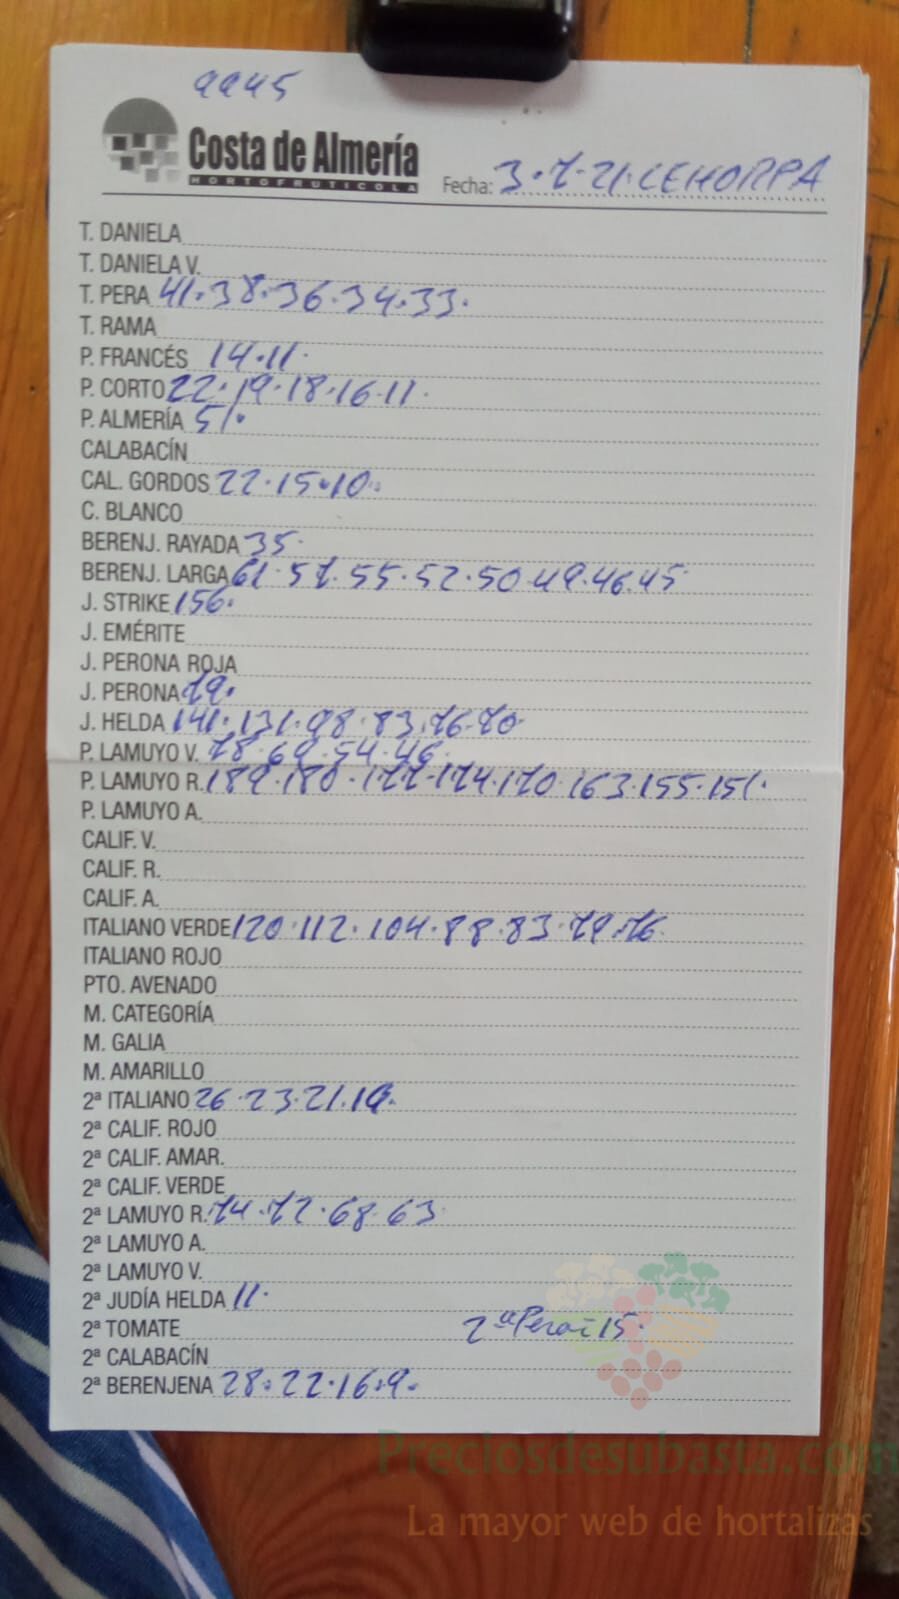 9945
Costa de Almería
HORTOFRUTICOLA
Fecha: 3.7.21.CEHORPA
T. DANIELA
T. DANIELA V.
T. PERA 41.38.36.34.33.
T. RAMA
P. FRANCÉS 14.11.
P. CORTO 22.19.18.16.11.
P. ALMERÍA 51.
CALABACÍN
CAL. GORDOS 22.15.10.
C. BLANCO
BERENJ. RAYADA 35.
BERENJ. LARGA 61.57.55.52.50.49.46.45
J. STRIKE 156.
J. EMÉRITE
J. PERONA ROJA
J. PERONA 79.
J. HELDA 141.131.98.83.76.70
P. LAMUYO V. 78.69.54.46.
P. LAMUYO R. 189.180.177.174.170.163.155.151.
P. LAMUYO A.
CALIF. V.
CALIF. R.
CALIF. A.
ITALIANO VERDE 120.112.104.88.83.79.76
ITALIANO ROJO
PTO. AVENADO
M. CATEGORÍA
M. GALIA
M. AMARILLO
2ª ITALIANO 26.23.21.19.
2ª CALIF. ROJO
2ª CALIF. AMAR.
2ª CALIF. VERDE
2ª LAMUYO R. 74.72.68.63
2ª LAMUYO A.
2ª LAMUYO V.
2ª JUDÍA HELDA 11.
2ª TOMATE 2ª Pera=15.
2ª CALABACÍN
2ª BERENJENA 28.22.16.9.
Preciosdesubasta.com
La mayor web de hortalizas